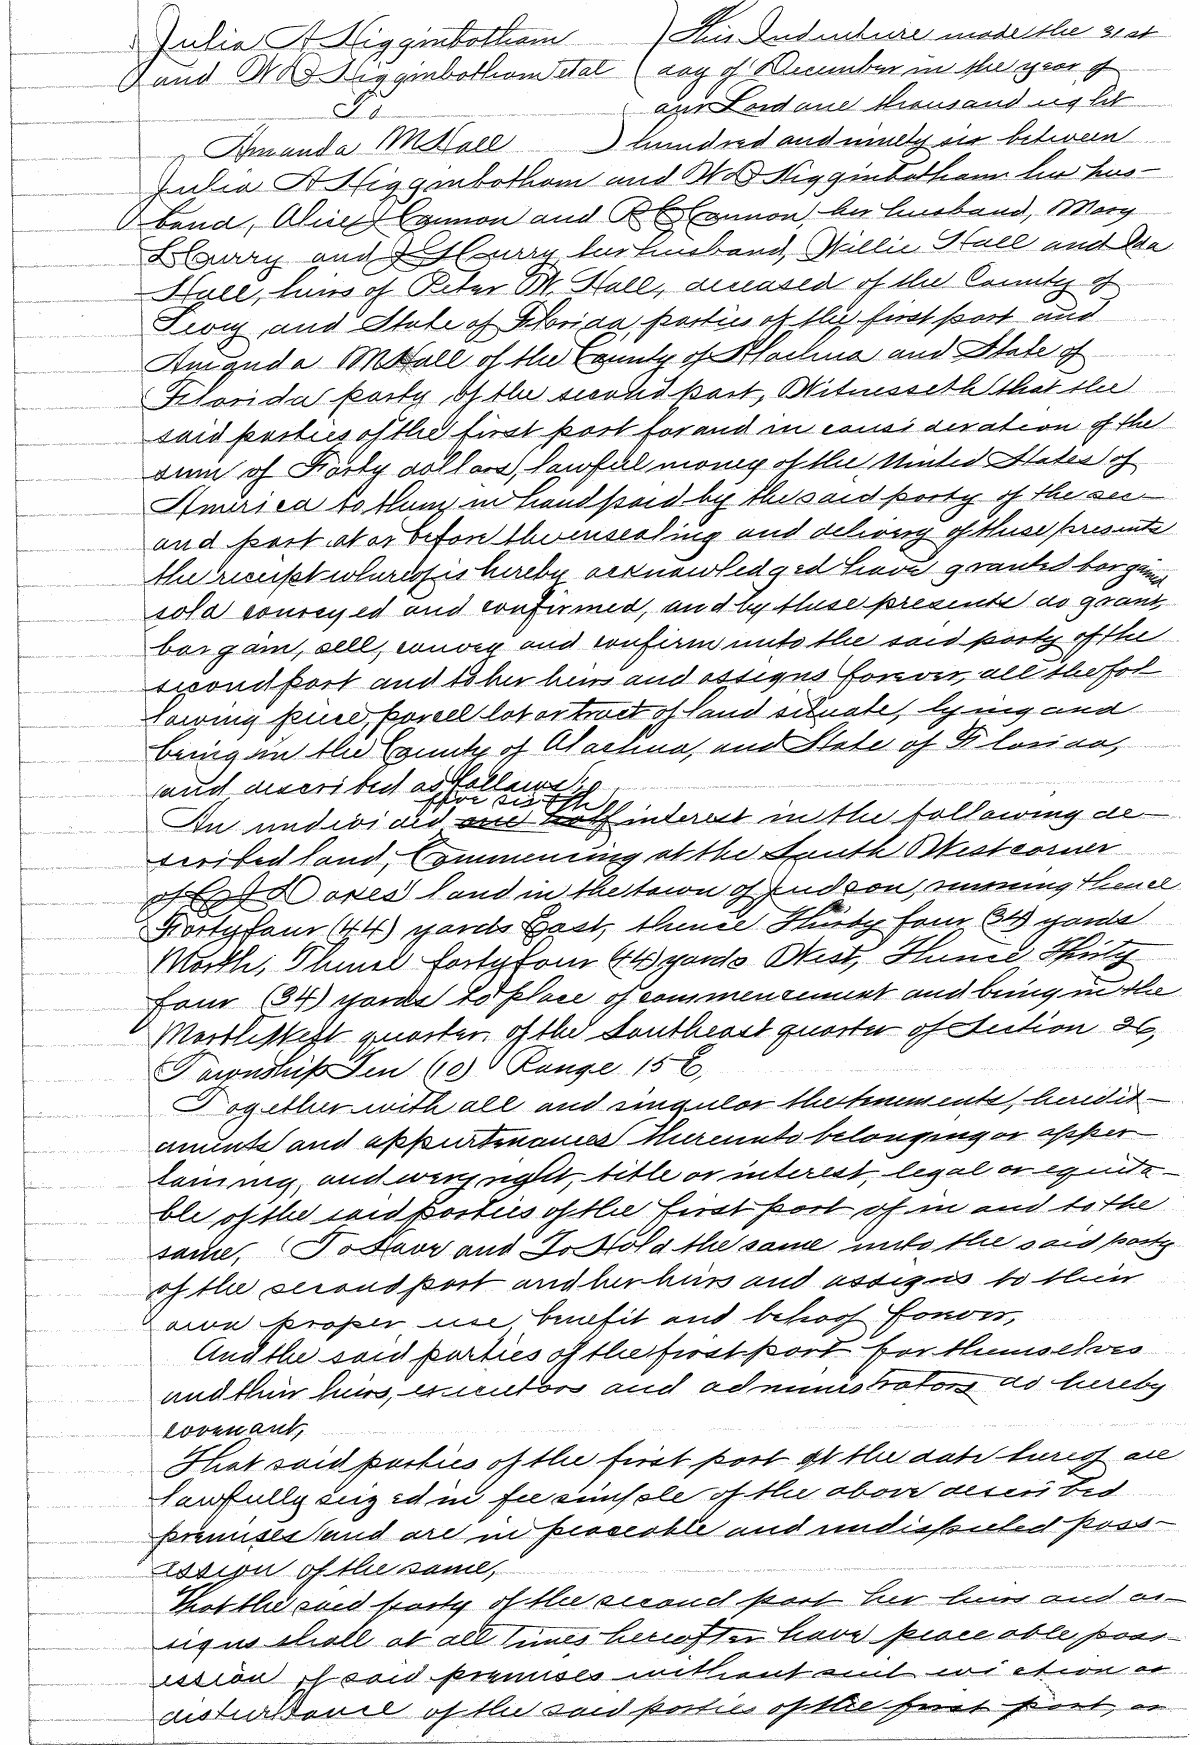 Julia A Higginbotham ) This Indenture made the 31st
and W D Higginbotham etal ( day of December in the year of
To our Lord one thousand eight
Amanda M Hall ) hundred and ninety six between
Julia A Higginbotham and W D Higginbotham her hus-
band, Alice Cannon and R E Cannon, her husband, Mary
L Curry and J H Curry her husband, Willie Hall and Ida
Hall, heirs of Peter M. Hall, deceased of the County of
Levy and State of Florida, parties of the first part and
Amanda M Hall of the County of Alachua and State of
Florida party of the second part, Witnesseth that the
said parties of the first part for and in consideration of the
sum of Forty dollars, lawful money of the United States of
America to them in hand paid by the said party of the sec-
ond part at or before the ensealing and delivery of these presents
the receipt whereof is hereby acknowledged have granted bargained
sold conveyed and confirmed, and by these presents do grant,
bargain, sell, convey and confirm unto the said party of the
second part and to her heirs and assigns forever, all the fol
lowing piece, parcel lot or tract of land situate, lying and
being in the County of Alachua, and State of Florida,
and described as follows;
five sixth
An undivided one half interest in the following de-
scribed land, Commencing at the South West corner
of land in the town of Judson, running thence
Forty four (44) yards East, thence Thirty four (34) yards
North, Thence forty four (44) yards West, Thence Thirty
four (34) yards to place of commencement and being in the
North West quarter, of the Southeast quarter of Section 26,
Township Ten (10) Range 15 E,
Together with all and singular the tenements, heredit-
aments and appurtenances thereunto belonging or apper-
taining, and every right, title or interest, legal or equita-
ble of the said parties of the first part of in and to the
same, To Have and To Hold the same unto the said party
of the second part and her heirs and assigns to their
own proper use, benefit and behoof forever,
And the said parties of the first part for themselves
and their heirs, executors and administrators do hereby
covenant,
That said parties of the first part at the date hereof are
lawfully seized in fee simple of the above described
premises and are in peaceable and undisputed poss-
ession of the same,
That the said party of the second part her heirs and as-
signs shall at all times hereafter have peaceable poss-
ession of said premises without suit eviction or
disturbance of the said parties of the first part, or